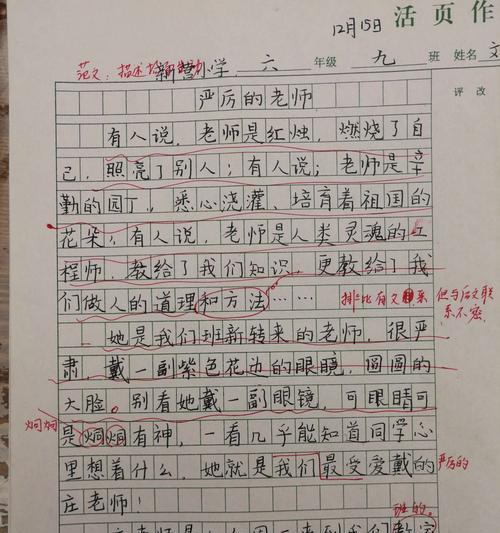 12月15日 活页作
范文:描述
新营小学 六 年级 九 班 姓名 文
评 改
严厉的老师
有人说,老师是红烛,燃烧了自
己,照亮了别人;有人说;老师是辛
勤的园丁,悉心浇灌、培育着祖国的
花朵;有人说,老师是人类灵魂的工
程师,教给了我们知识,更教给了我
们做人的道理和方法……
排比有文采
但与后文联
系不密
她是我们班新转来的老师,很严
肃,戴一副紫色花边的眼镜,圆圆的
大脸。别看她戴一副眼镜,可眼睛可
炯炯
是炯炯有神,一看几乎能知道同学心
里想着什么,她就是我们最受爱戴的
严厉的
庄老师!
班的